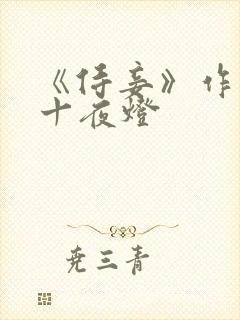 《侍妾》作
十夜燈
尭三青